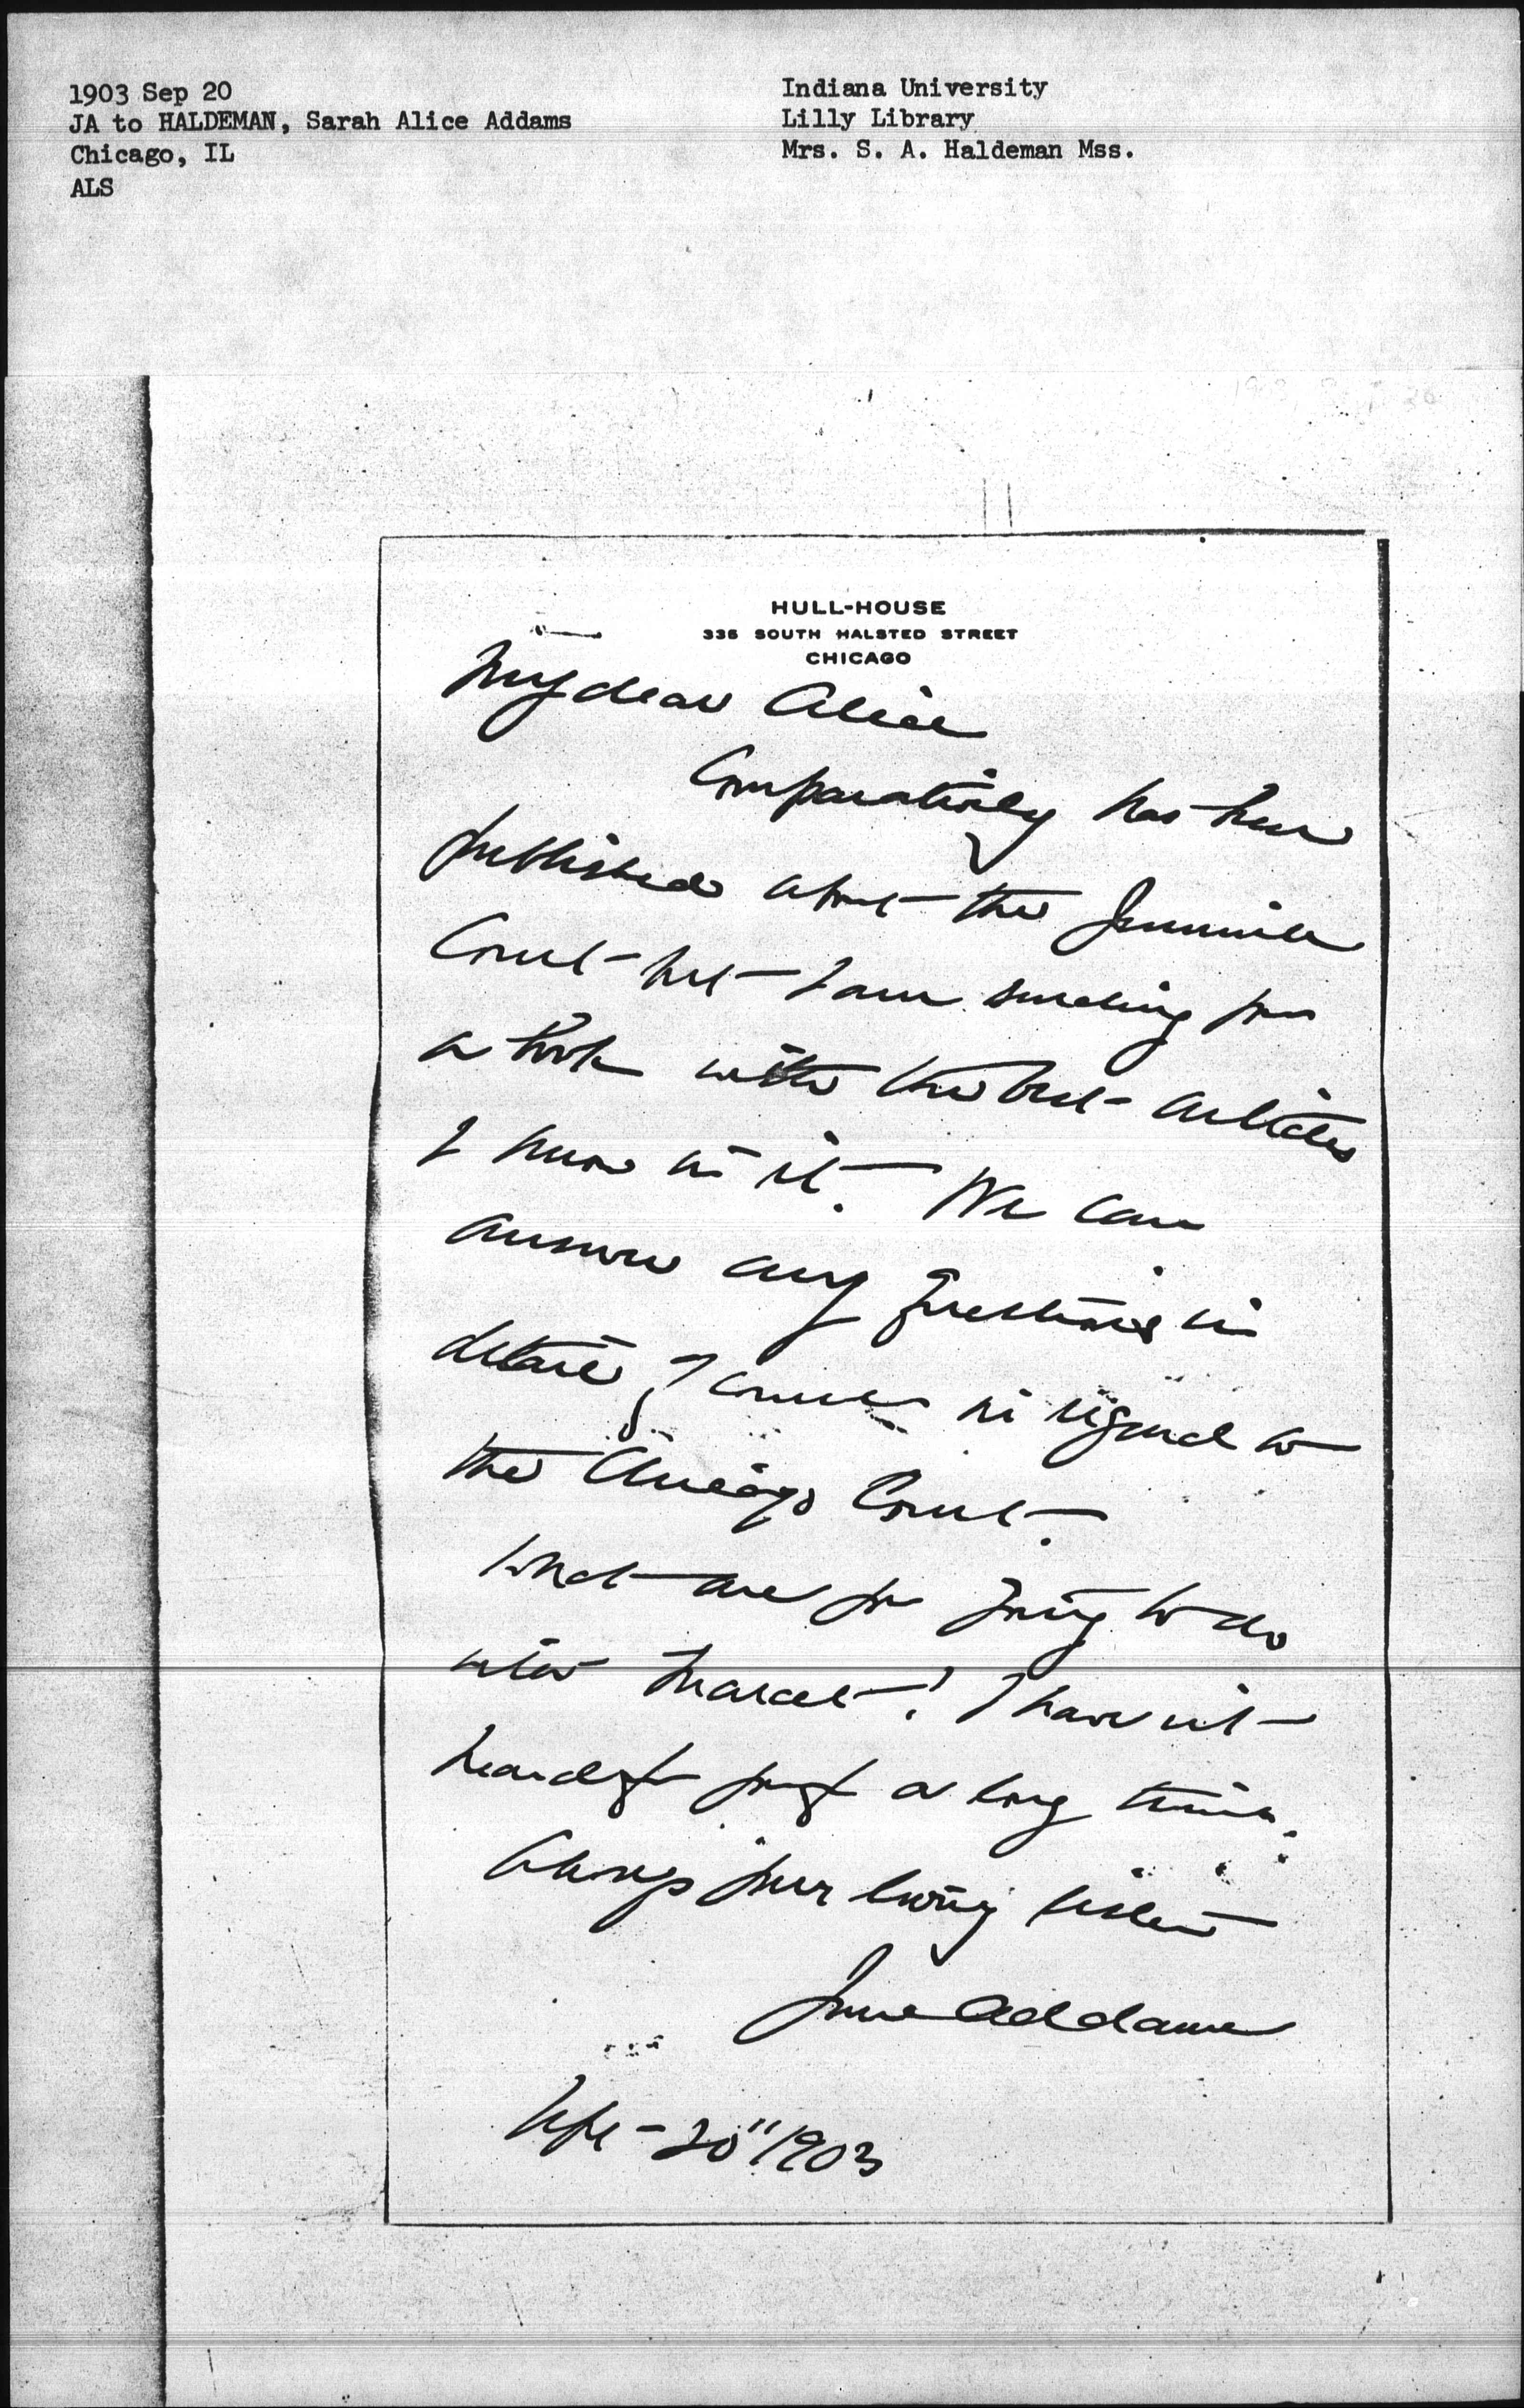 1903 Sep 20
JA to HALDEMAN, Sarah Alice Addams
Chicago, IL
ALS
Indiana University
Lilly Library
Mrs. S. A. Haldeman Mss.
HULL-HOUSE
335 SOUTH HALSTED STREET
CHICAGO
My dear Alice
Comparatively has been
published about the Juvenile
Court but I am sending you
a book with the best articles
I know in it. We can
answer any questions in
detail, of course in regard to
the Chicago Court.
What are you going to do
with Marcet? I have n't
heard for a long time.
Always your loving sister
Jane Addams
Sept - 20" 1903